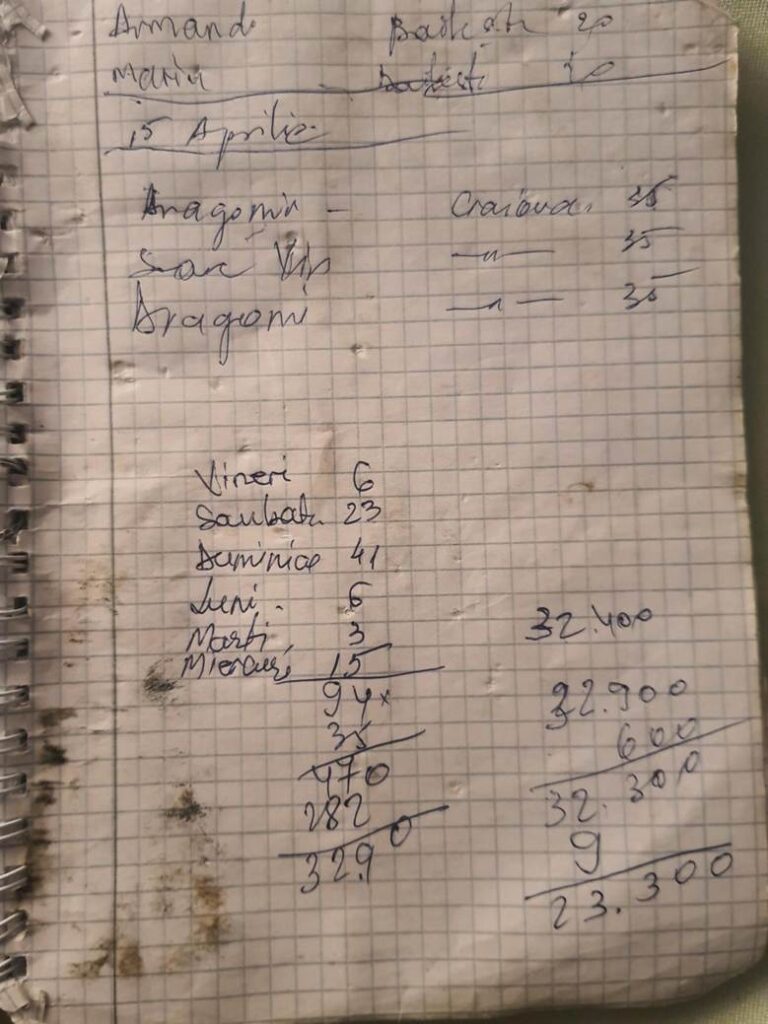 Armand 20
Maria
15 Aprilie
Dragomir - Craiova. 35
Vip —〃— 35
Dragomi —〃— 35
Vineri 6
Sambata 23
Duminica 41
Luni - 6
Marti 3
Miercuri, 15
94 x
35
470
282
3290
32.400
32.900
600
32.300
9
23.300